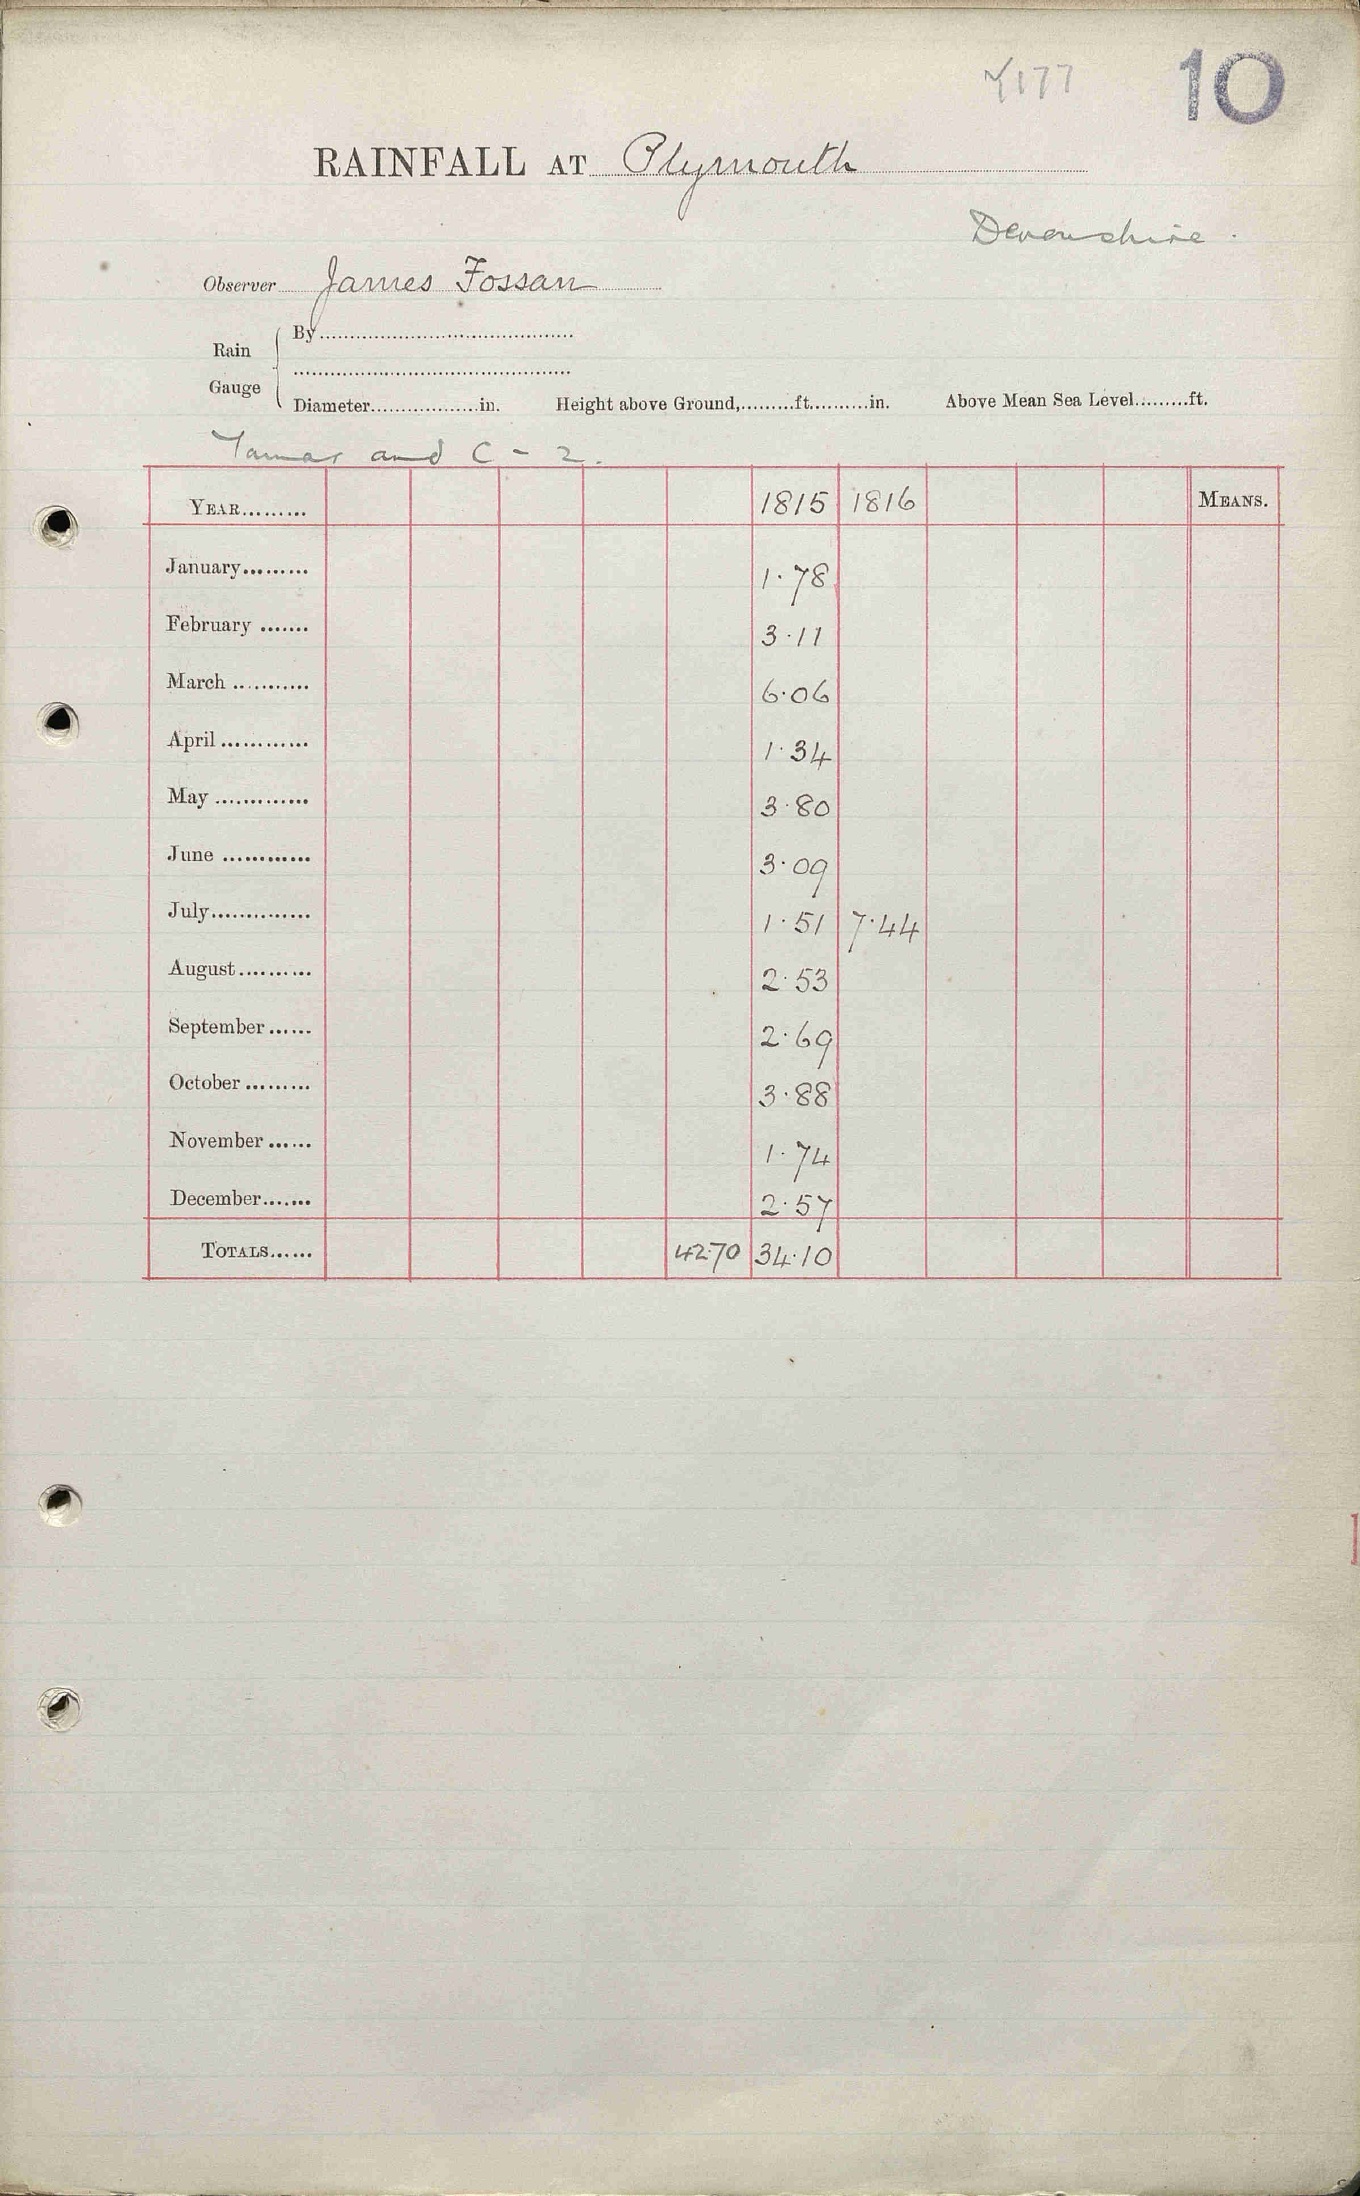 177 10
RAINFALL AT Plymouth
Devonshire.
Observer James Fossan
Rain Gauge
By
Diameter in. Height above Ground, ft. in. Above Mean Sea Level ft.
Tamar and C - 2.
YEAR 1815 1816 MEANS.
January 1.78
February 3.11
March 6.06
April 1.34
May 3.80
June 3.09
July 1.51 7.44
August 2.53
September 2.69
October 3.88
November 1.74
December 2.57
TOTALS 42.70 34.10